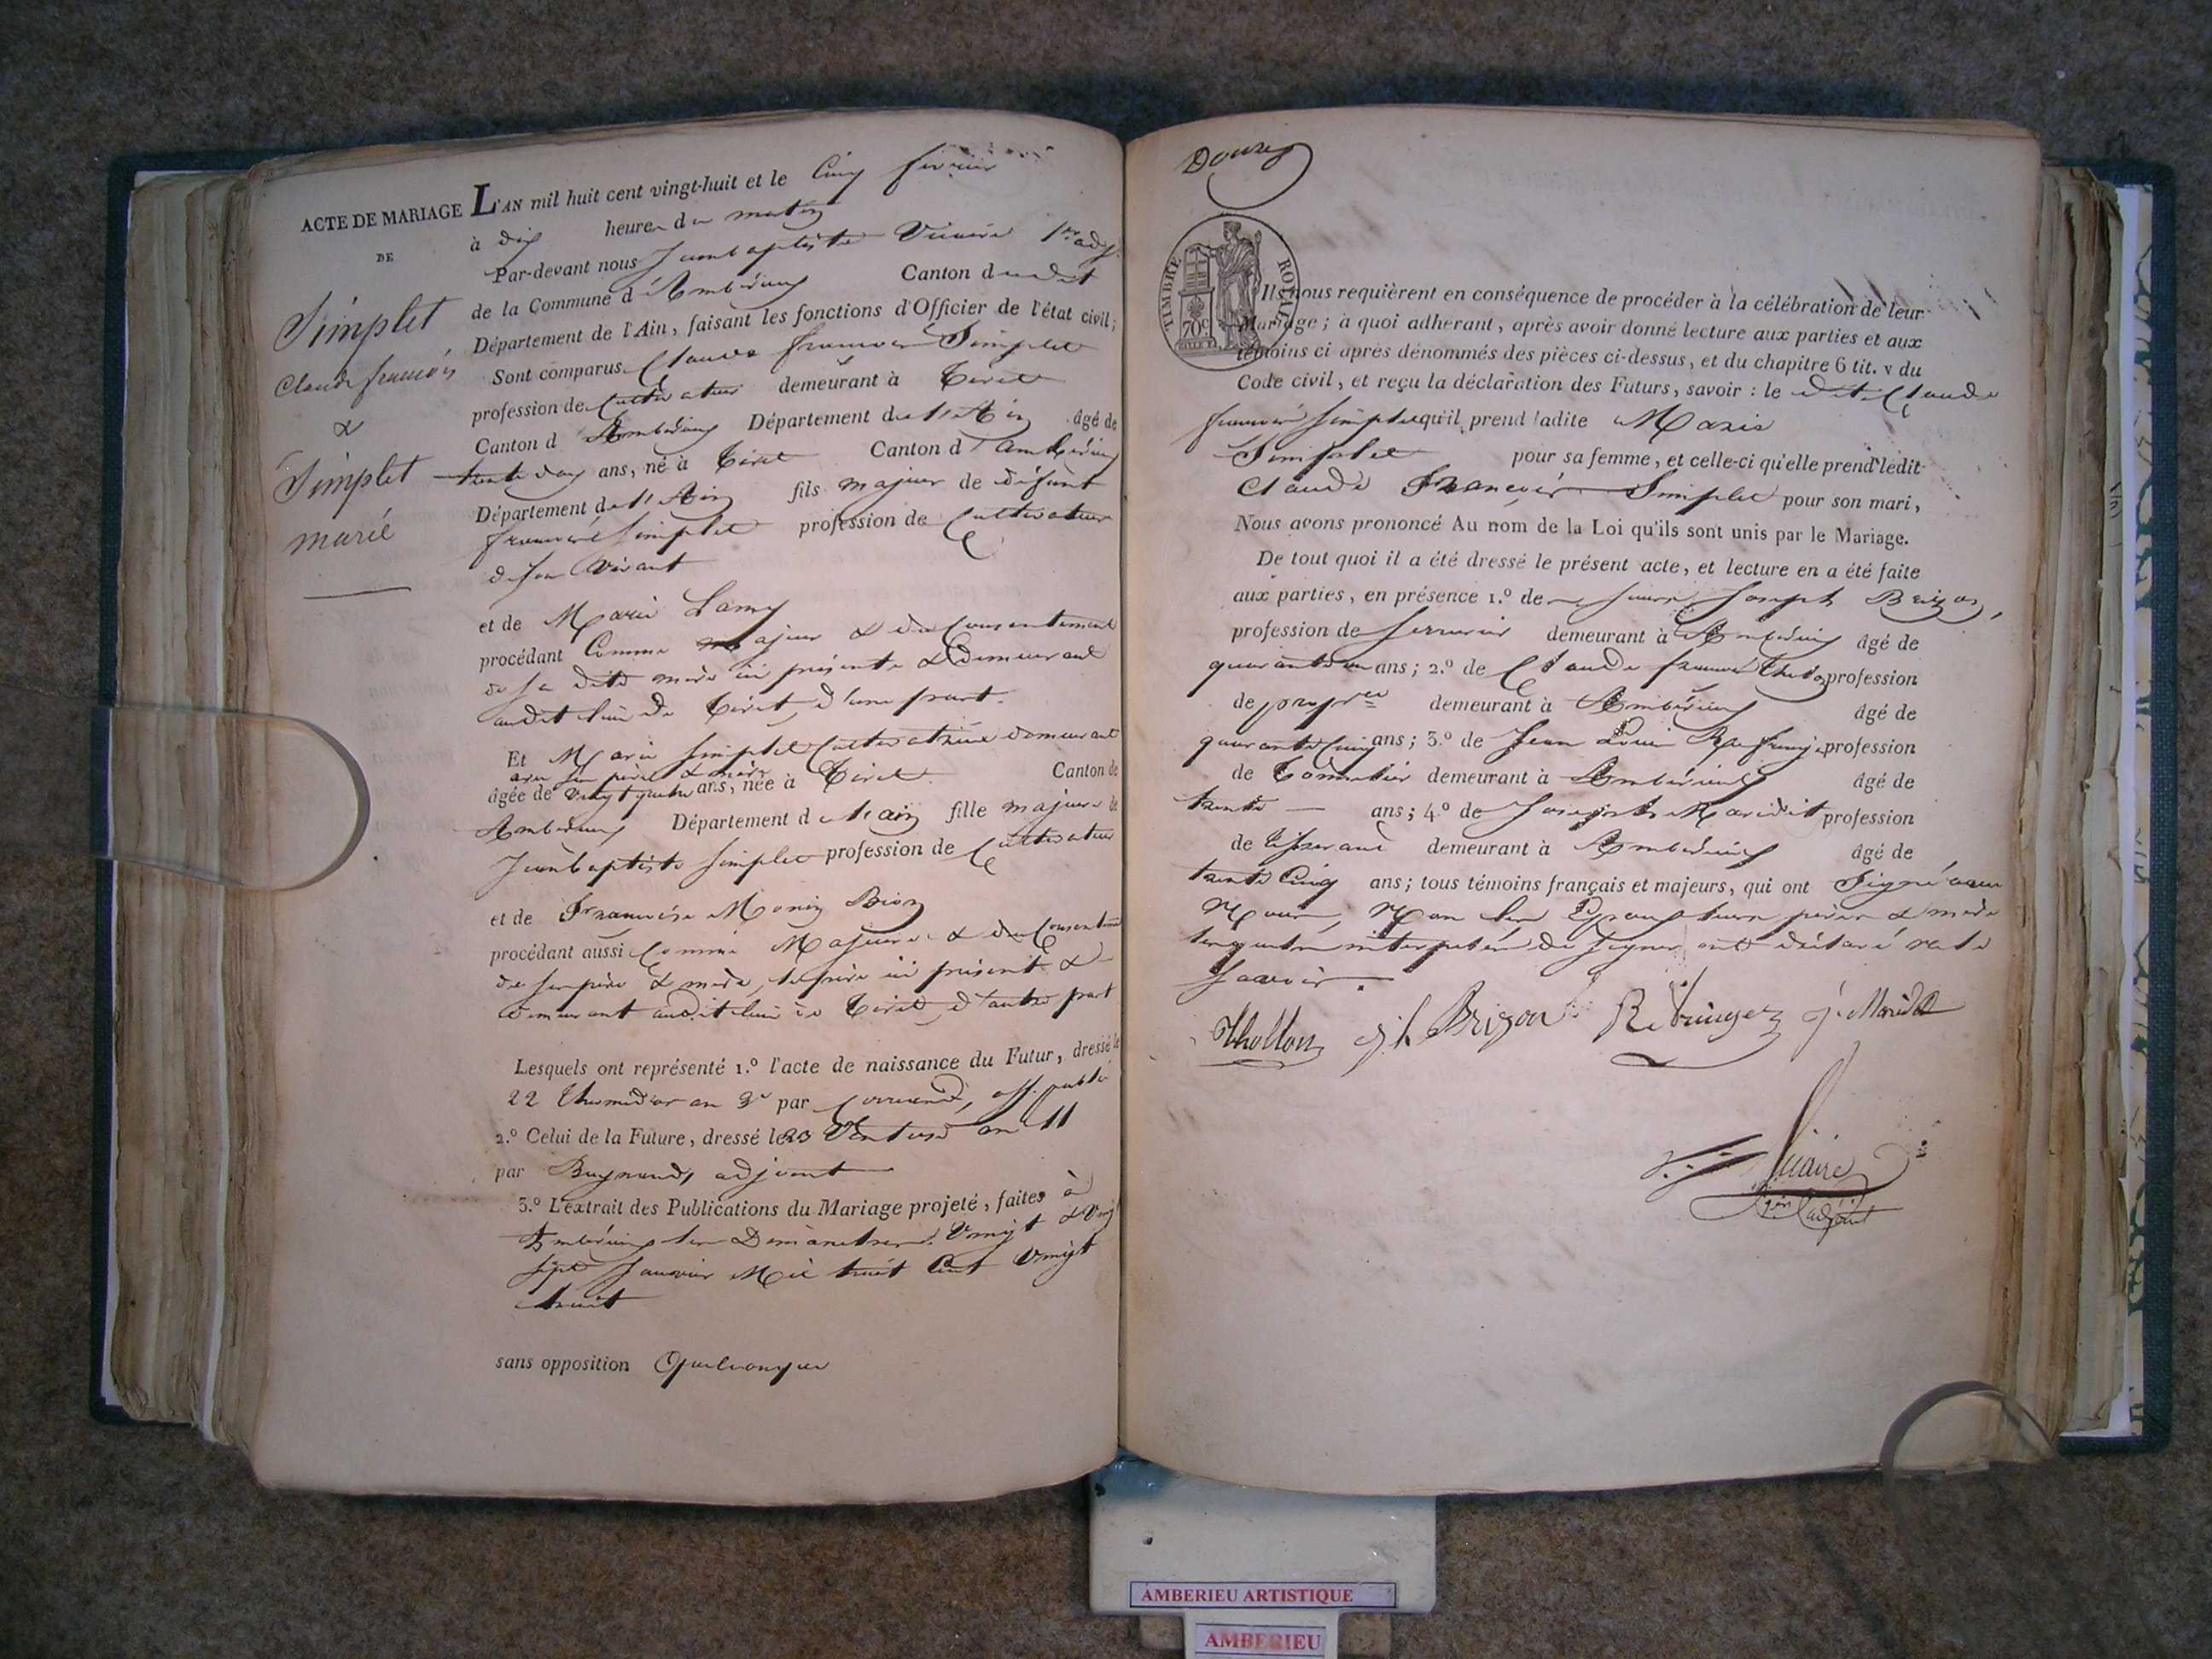 ACTE DE MARIAGE
DE
Simplet
Claude françois
&
Simplet
marie
L'AN mil huit cent vingt-huit et le Cinq février
à dix heures du matin
Par-devant nous Jeanbaptiste Vicaire 1er adj.
de la Commune d'Ambérieux Canton dudit
Département de l'Ain, faisant les fonctions d'Officier de l'état civil;
Sont comparus Claude françois Simplet
profession de Cultivateur demeurant à Tiret
Canton d'Ambérieux Département de l'Ain âgé de
trente deux ans, né à Tiret Canton d'ambérieux
Département de l'Ain fils majeur de défunt
françois Simplet profession de Cultivateur
de son vivant
et de Marie Lamy
procédant Comme majeur & du Consentement
de sa dite mère ici présente & demeurant
audit lieu de Tiret, d'une part.
Et Marie Simplet Cultivatrice demeurant
avec ses père & mère
âgée de vingt quatre ans, née à Tiret Canton de
Ambérieux Département de l'ain fille majeure de
Jeanbaptiste Simplet profession de Cultivateur
et de Françoise Monin Bion
procédant aussi Comme Majeure & du Consentement
de ses père & mère, le père ici présent &
demeurant audit lieu de Tiret, d'autre part
Lesquels ont représenté 1.º l'acte de naissance du Futur, dressé le
22 thermidor an 3e par off. public
2.º Celui de la Future, dressé le 23 Ventose an 11
par Buynand, adjoint
3.º L'extrait des Publications du Mariage projeté, faites à
Ambérieux les Dimanches Vingt & Vingt
sept Janvier Mil huit Cent Vingt
huit
sans opposition Quelconque
Douze
TIMBRE ROYAL
70c
Ils nous requièrent en conséquence de procéder à la célébration de leur
Mariage; à quoi adhérant, après avoir donné lecture aux parties et aux
témoins ci après dénommés des pièces ci-dessus, et du chapitre 6 tit. v du
Code civil, et reçu la déclaration des Futurs, savoir : le dit Claude
françois Simplet qu'il prend ladite Marie
Simplet pour sa femme, et celle-ci qu'elle prend ledit
Claude François Simplet pour son mari,
Nous avons prononcé Au nom de la Loi qu'ils sont unis par le Mariage.
De tout quoi il a été dressé le présent acte, et lecture en a été faite
aux parties, en présence 1.º de Joseph Brizon,
profession de Serrurier demeurant à Ambérieux âgé de
quarante un ans; 2.º de Claude françois Thollon profession
de propre demeurant à Ambérieux âgé de
quarante Cinq ans; 3.º de Jean Louis profession
de Tonnelier demeurant à Ambérieux âgé de
trente ans; 4.º de Joseph Maridet profession
de tisserand demeurant à Ambérieux âgé de
trente Cinq ans; tous témoins français et majeurs, qui ont Signé avec
Nous, Non les Epoux leurs père & mère
requis interpelés de signer ont déclaré ne le
Savoir.
Thollon jh Brizon j. Maridet
Vicaire
1er adjoint
AMBERIEU ARTISTIQUE
AMBERIEU